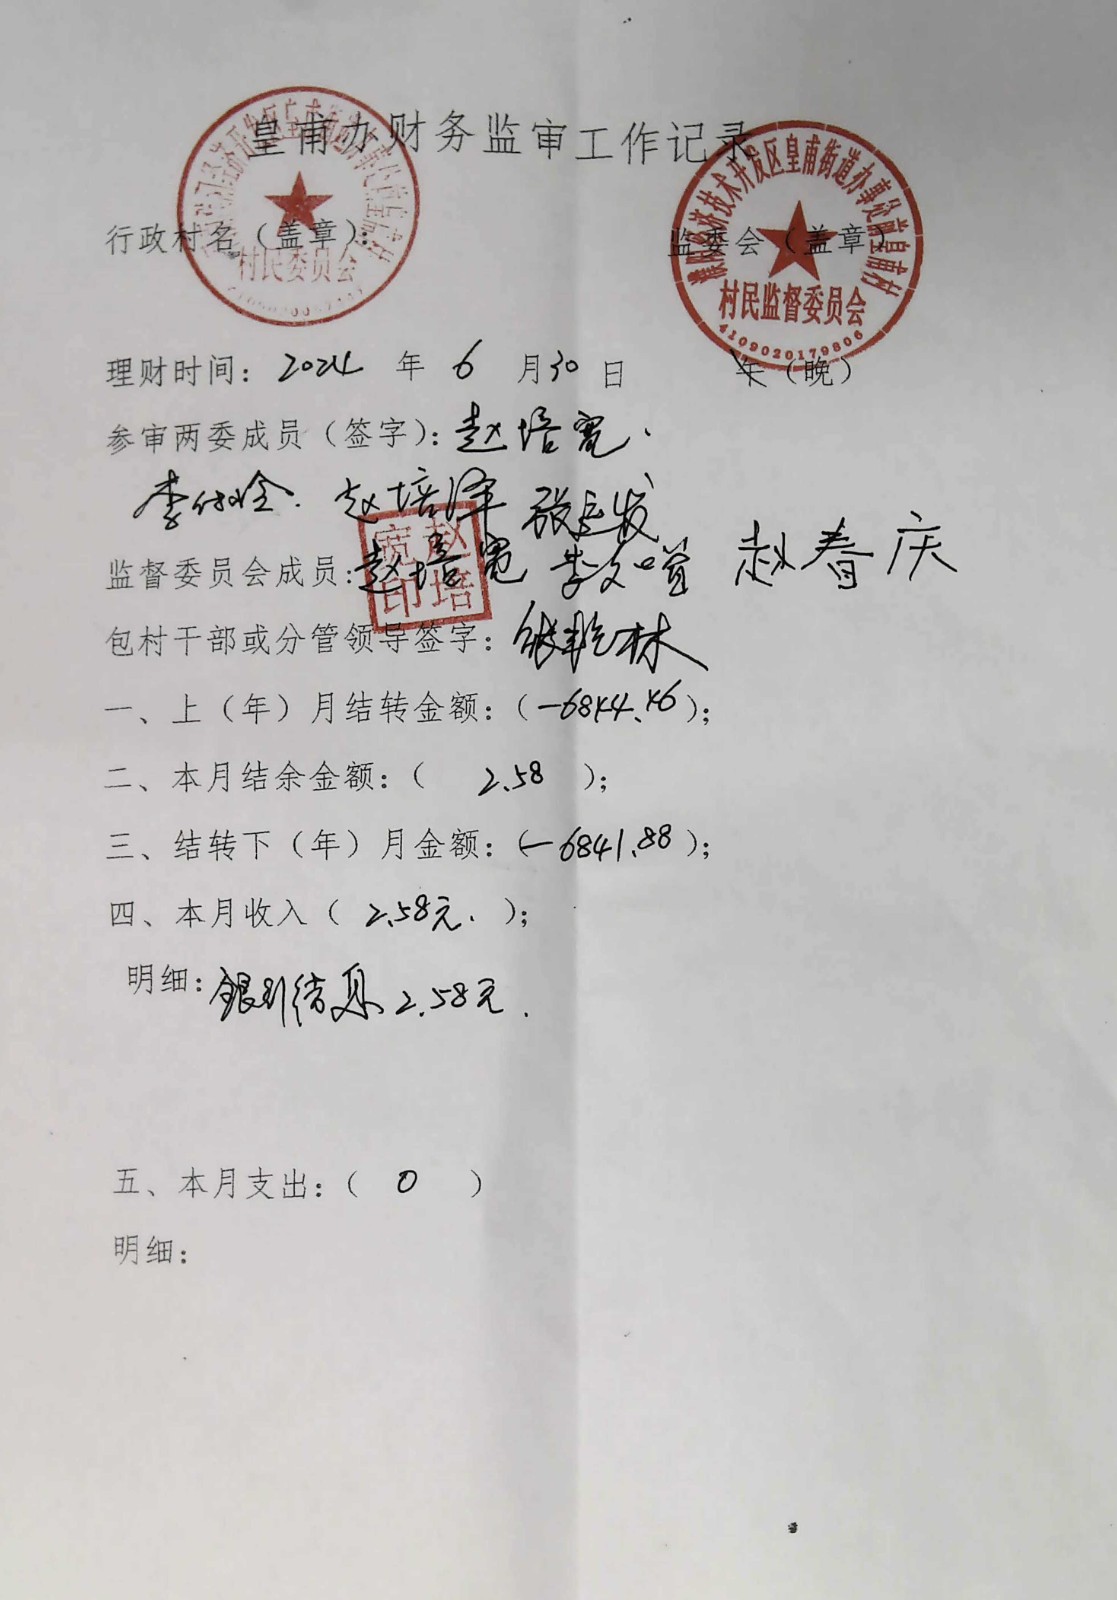 皇甫办财务监审工作记录
行政村名（盖章）：
村民委员会
监委会（盖章
濮阳经济技术开发区皇甫街道办事处前皇甫村
村民监督委员会
4109020179806
理财时间：2024 年 6 月30日 年（晚）
参审两委成员（签字）：赵培宽.
赵培泽
赵培宽印
监督委员会成员：赵培宽 赵春庆
包村干部或分管领导签字：张艳林
一、上（年）月结转金额：（-6844.46）；
二、本月结余金额：（ 2.58 ）；
三、结转下（年）月金额：（-6841.88）；
四、本月收入（ 2.58元. ）；
明细：银行结息2.58元.
五、本月支出：（ 0 ）
明细：